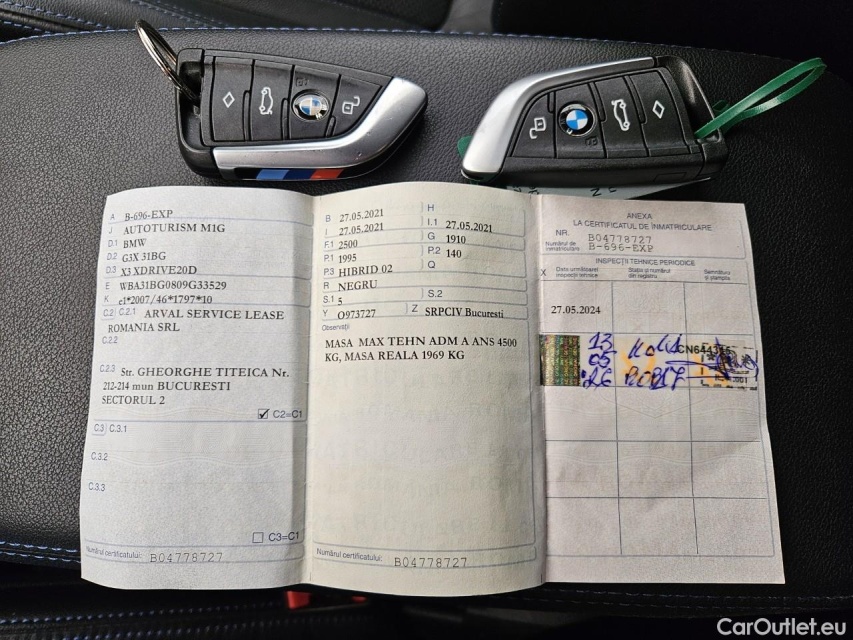 A B-696-EXP
J AUTOTURISM M1G
D.1 BMW
D.2 G3X 31BG
D.3 X3 XDRIVE20D
E WBA31BG0809G33529
K e1*2007/46*1797*10
C.2 C.2.1 ARVAL SERVICE LEASE
ROMANIA SRL
C.2.2
C.2.3 Str. GHEORGHE TITEICA Nr.
212-214 mun BUCURESTI
SECTORUL 2
C2=C1
C.3 C.3.1
C.3.2
C.3.3
C3=C1
Numărul certificatului: B04778727
B 27.05.2021
H
I 27.05.2021
I.1 27.05.2021
F.1 2500
G 1910
P.1 1995
P.2 140
P.3 HIBRID 02
Q
R NEGRU
S.1 5
S.2
Y O973727
Z SRPCIV Bucuresti
Observații
MASA MAX TEHN ADM A ANS 4500
KG, MASA REALA 1969 KG
Numărul certificatului: B04778727
ANEXA
LA CERTIFICATUL DE ÎNMATRICULARE
NR. B04778727
Numărul de
înmatriculare B-696-EXP
INSPECȚII TEHNICE PERIODICE
X
Data următoarei
inspecții tehnice
Stația și numărul
din registru
Semnătura
și ștampila
27.05.2024
13
05
26
CN644345
CarOutlet.eu